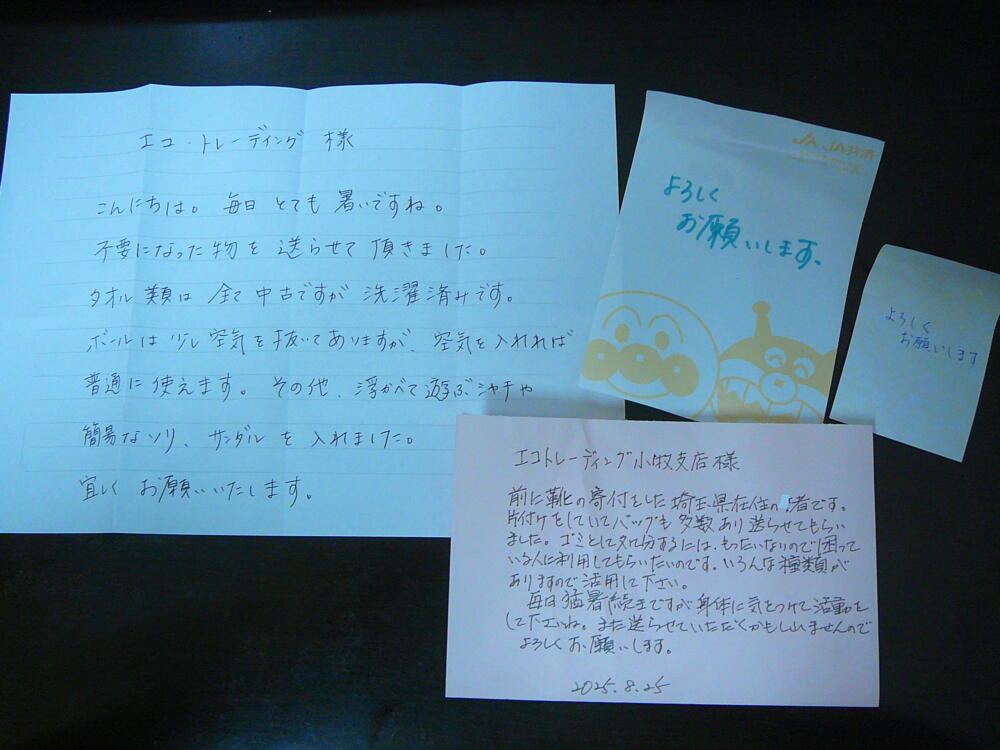 エコ・トレーディング 様
こんにちは。毎日 とても 暑いですね。
不要になった物を 送らせて 頂きました。
タオル類は 全て 中古ですが 洗濯済みです。
ボールは 少し 空気を 抜いてありますが、空気を入れれば
普通に 使えます。その他、浮かべて遊ぶシャチや
簡易なソリ、サンダルを 入れました。
宜しく お願いいたします。
JA JA共済
よろしく
お願いします、
よろしく
お願いします
エコトレーディング小牧支店様
前に靴の寄付をした埼玉県在住の 者です。
片付けをしていてバッグも多数あり送らせてもらい
ました。ゴミとして処分するには、もったいないので困って
いる人に利用してもらいたいのです。いろんな種類が
ありますので活用して下さい。
毎日猛暑続きですが身体に気をつけて活動を
して下さいね。また送らせていただくかもしれませんので
よろしくお願いします。
2025.8.25